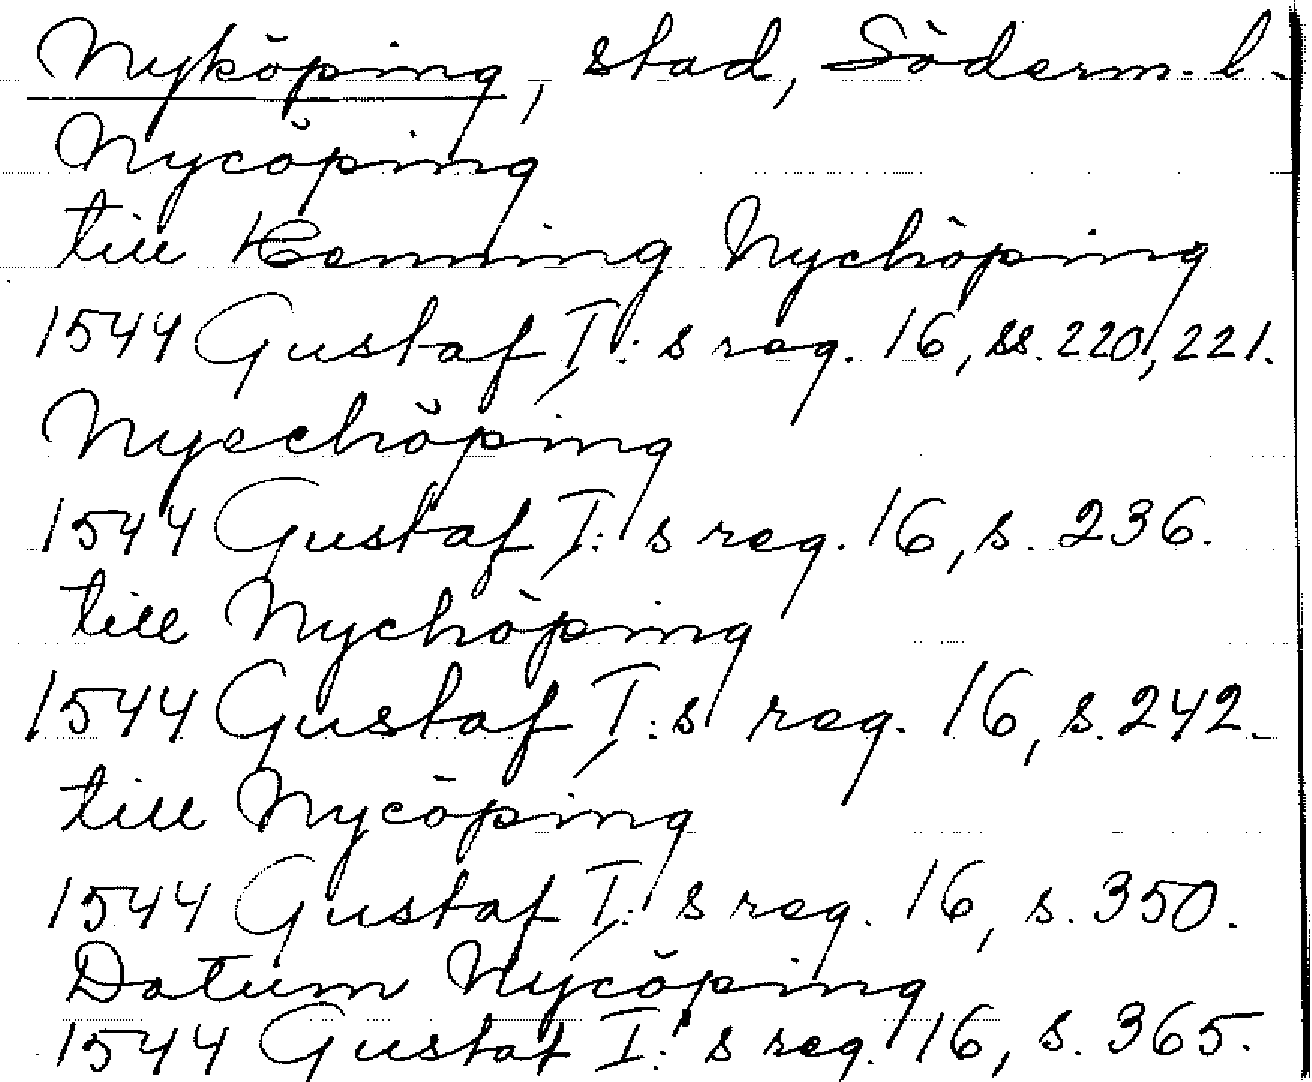 Nyköping, stad, Söderm. l.
Nycöping
till Henning Nychöping
1544 Gustaf I:s reg. 16, ss. 220, 221.
Nyechöping
1544 Gustaf I:s reg. 16, s. 236.
till Nychöping
1544 Gustaf I:s reg. 16, s. 242.
till Nycöping
1544 Gustaf I:s reg. 16, s. 350.
Datum Nycöping
1544 Gustaf I:s reg. 16, s. 365.